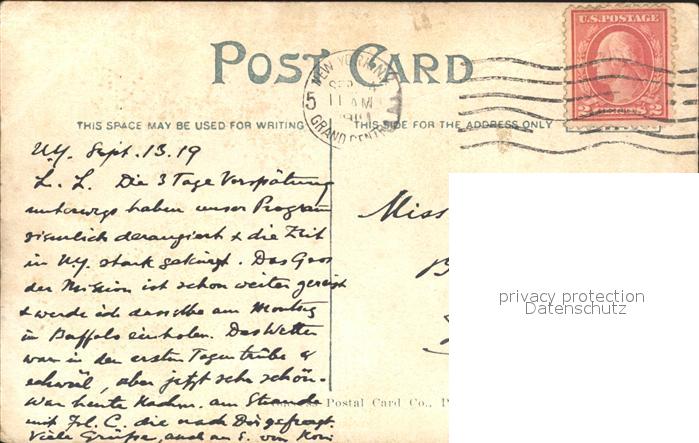 POST CARD
NEW YORK, N.Y.
SEP
5 11 AM
GRAND CENTRAL
U.S. POSTAGE
2 2
THIS SPACE MAY BE USED FOR WRITING
THIS SIDE FOR THE ADDRESS ONLY
N.Y. Sept. 13. 19
L. L. Die 3 Tage Verspätung
unterwegs haben unser Program
ziemlich derangiert & die Zeit
in N.Y. stark gekürzt. Das Gros
der Mission ist schon weiter gereist
& werde ich dasselbe am Montag
in Buffalo einholen. Das Wetter
war in den ersten Tagen trübe &
schwül, aber jetzt sehr schön.
War heute Nachm. am Strande
mit Frl. C. die nach Dir gefragt.
Viele Grüsse, auch an E. von
Miss
privacy protection
Datenschutz
Postal Card Co.,